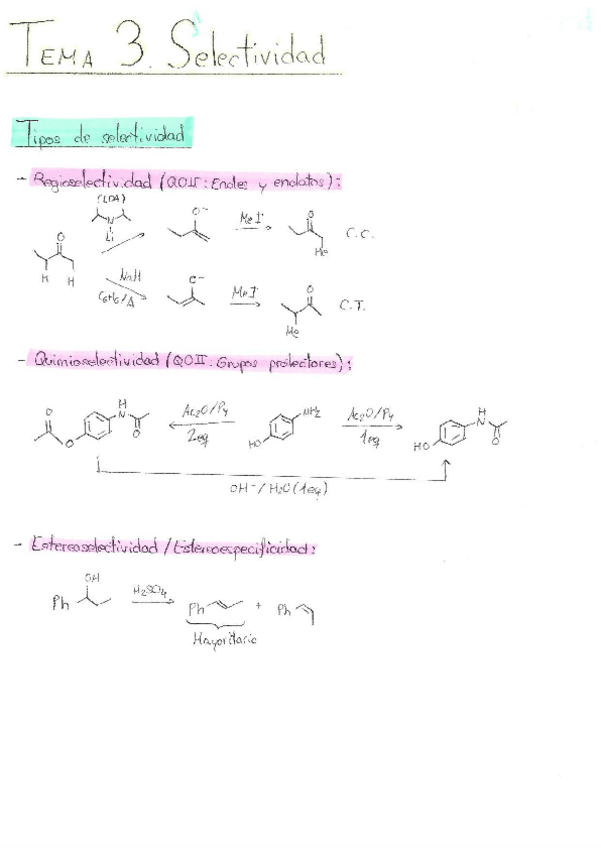 TEMA 3. Selectividad
Tipos de selectividad
- Regioselectividad (QOII: Enoles y enolatos):
(LDA)
N
Li
O
H H
O⁻
MeI
O
Me
C.C.
NaH
C6H6/Δ
O⁻
MeI
O
Me
C.T.
- Quimioselectividad (QOII: Grupos protectores):
O
O
H
N
O
Ac2O/Py
2eq
HO
NH2
Ac2O/Py
1eq
HO
H
N
O
OH⁻/H2O (1eq)
- Estereoselectividad / Estereoespecificidad:
OH
Ph
H2SO4
Ph
+
Ph
Mayoritario